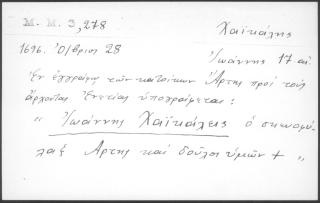 Μ. Μ. 3, 278
Χαϊκάλης
1696. Ο/βριος 28
Ἰωάννης 17 αἰ.
Ἐν ἐγγράφῳ τῶν κατοίκων Ἄρτης πρὸς τοὺς
ἄρχοντας Ἐνετίας ὑπογράφεται:
" Ἰωάννης Χαϊκάλεις ὁ σκευοφύ-
λαξ Ἄρτης καὶ δοῦλος ὑμῶν + "